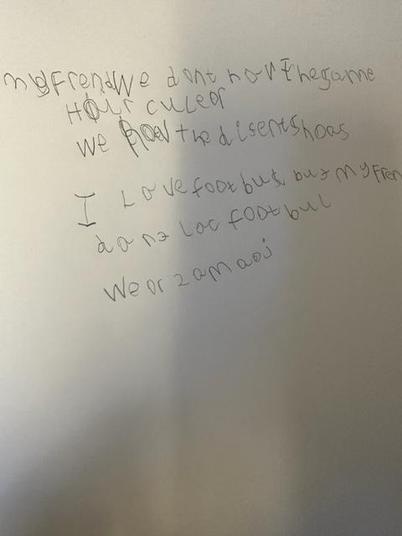 my Frend We dont hov The same
Hour culeor
We hov the disent shoas
I Love footbul, but my Fren
dont loc footbul
We or samaoj